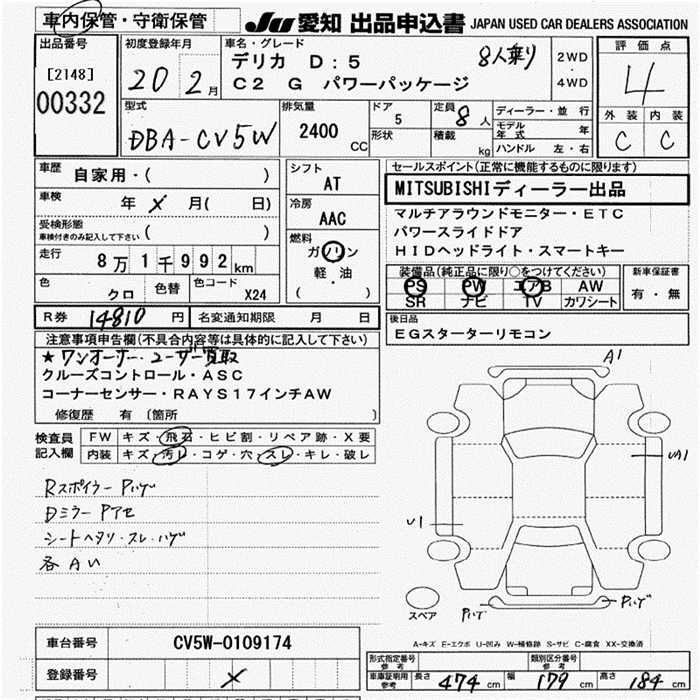 車内保管・守衛保管
JU 愛知 出品申込書 JAPAN USED CAR DEALERS ASSOCIATION
出品番号
[2148]
00332
初度登録年月
20 2月
車名・グレード
デリカ D:5 8人乗り
C2 G パワーパッケージ
2WD
・
4WD
評価点
4
外装 内装
C C
型式
DBA-CV5W
排気量
2400 CC
ドア
5
形状
定員 8人
積載 kg
ディーラー・並行
モデル年式 年
ハンドル 左・右
車歴 自家用・( )
車検 年 × 月( 日)
受検形態
車検付きのみ記入して下さい ( )
走行 8万1千992km
色 クロ 色替 色コード X24
R券 14810 円 名変通知期限 月 日
シフト
AT
冷房
AAC
燃料
ガソリン
軽・油
( )
セールスポイント(正常に機能するものに限ります)
MITSUBISHIディーラー出品
マルチアラウンドモニター・ETC
パワースライドドア
HIDヘッドライト・スマートキー
装備品(純正品に限り○をつけてください)
PS PW エアB AW
SR ナビ TV カワシート
新車保証書
有・無
後日品
EGスターターリモコン
注意事項申告欄(不具合内容等は具体的に記入して下さい)
★ワンオーナー・ユーザー買取
クルーズコントロール・ASC
コーナーセンサー・RAYS17インチAW
修復歴 有 〔箇所 〕
検査員
記入欄
FW キズ・飛石・ヒビ割・リペア跡・X要
内装 キズ・汚レ・コゲ・穴・スレ・キレ・破レ
Rスポイラー Pハゲ
Dミラー Pアセ
シートヘタリ・スレ・ハゲ
各AU
A1
UA1
U1
スペア
Pハゲ
Pハゲ
A-キズ E-エクボ U-凹み W-補修跡 S-サビ C-腐食 XX-交換済
車台番号 CV5W-0109174
登録番号 ×
形式指定番号 参考 類別区分番号 参考
車庫証明用 参考 長さ 474 cm 幅 179 cm 高さ 184 cm